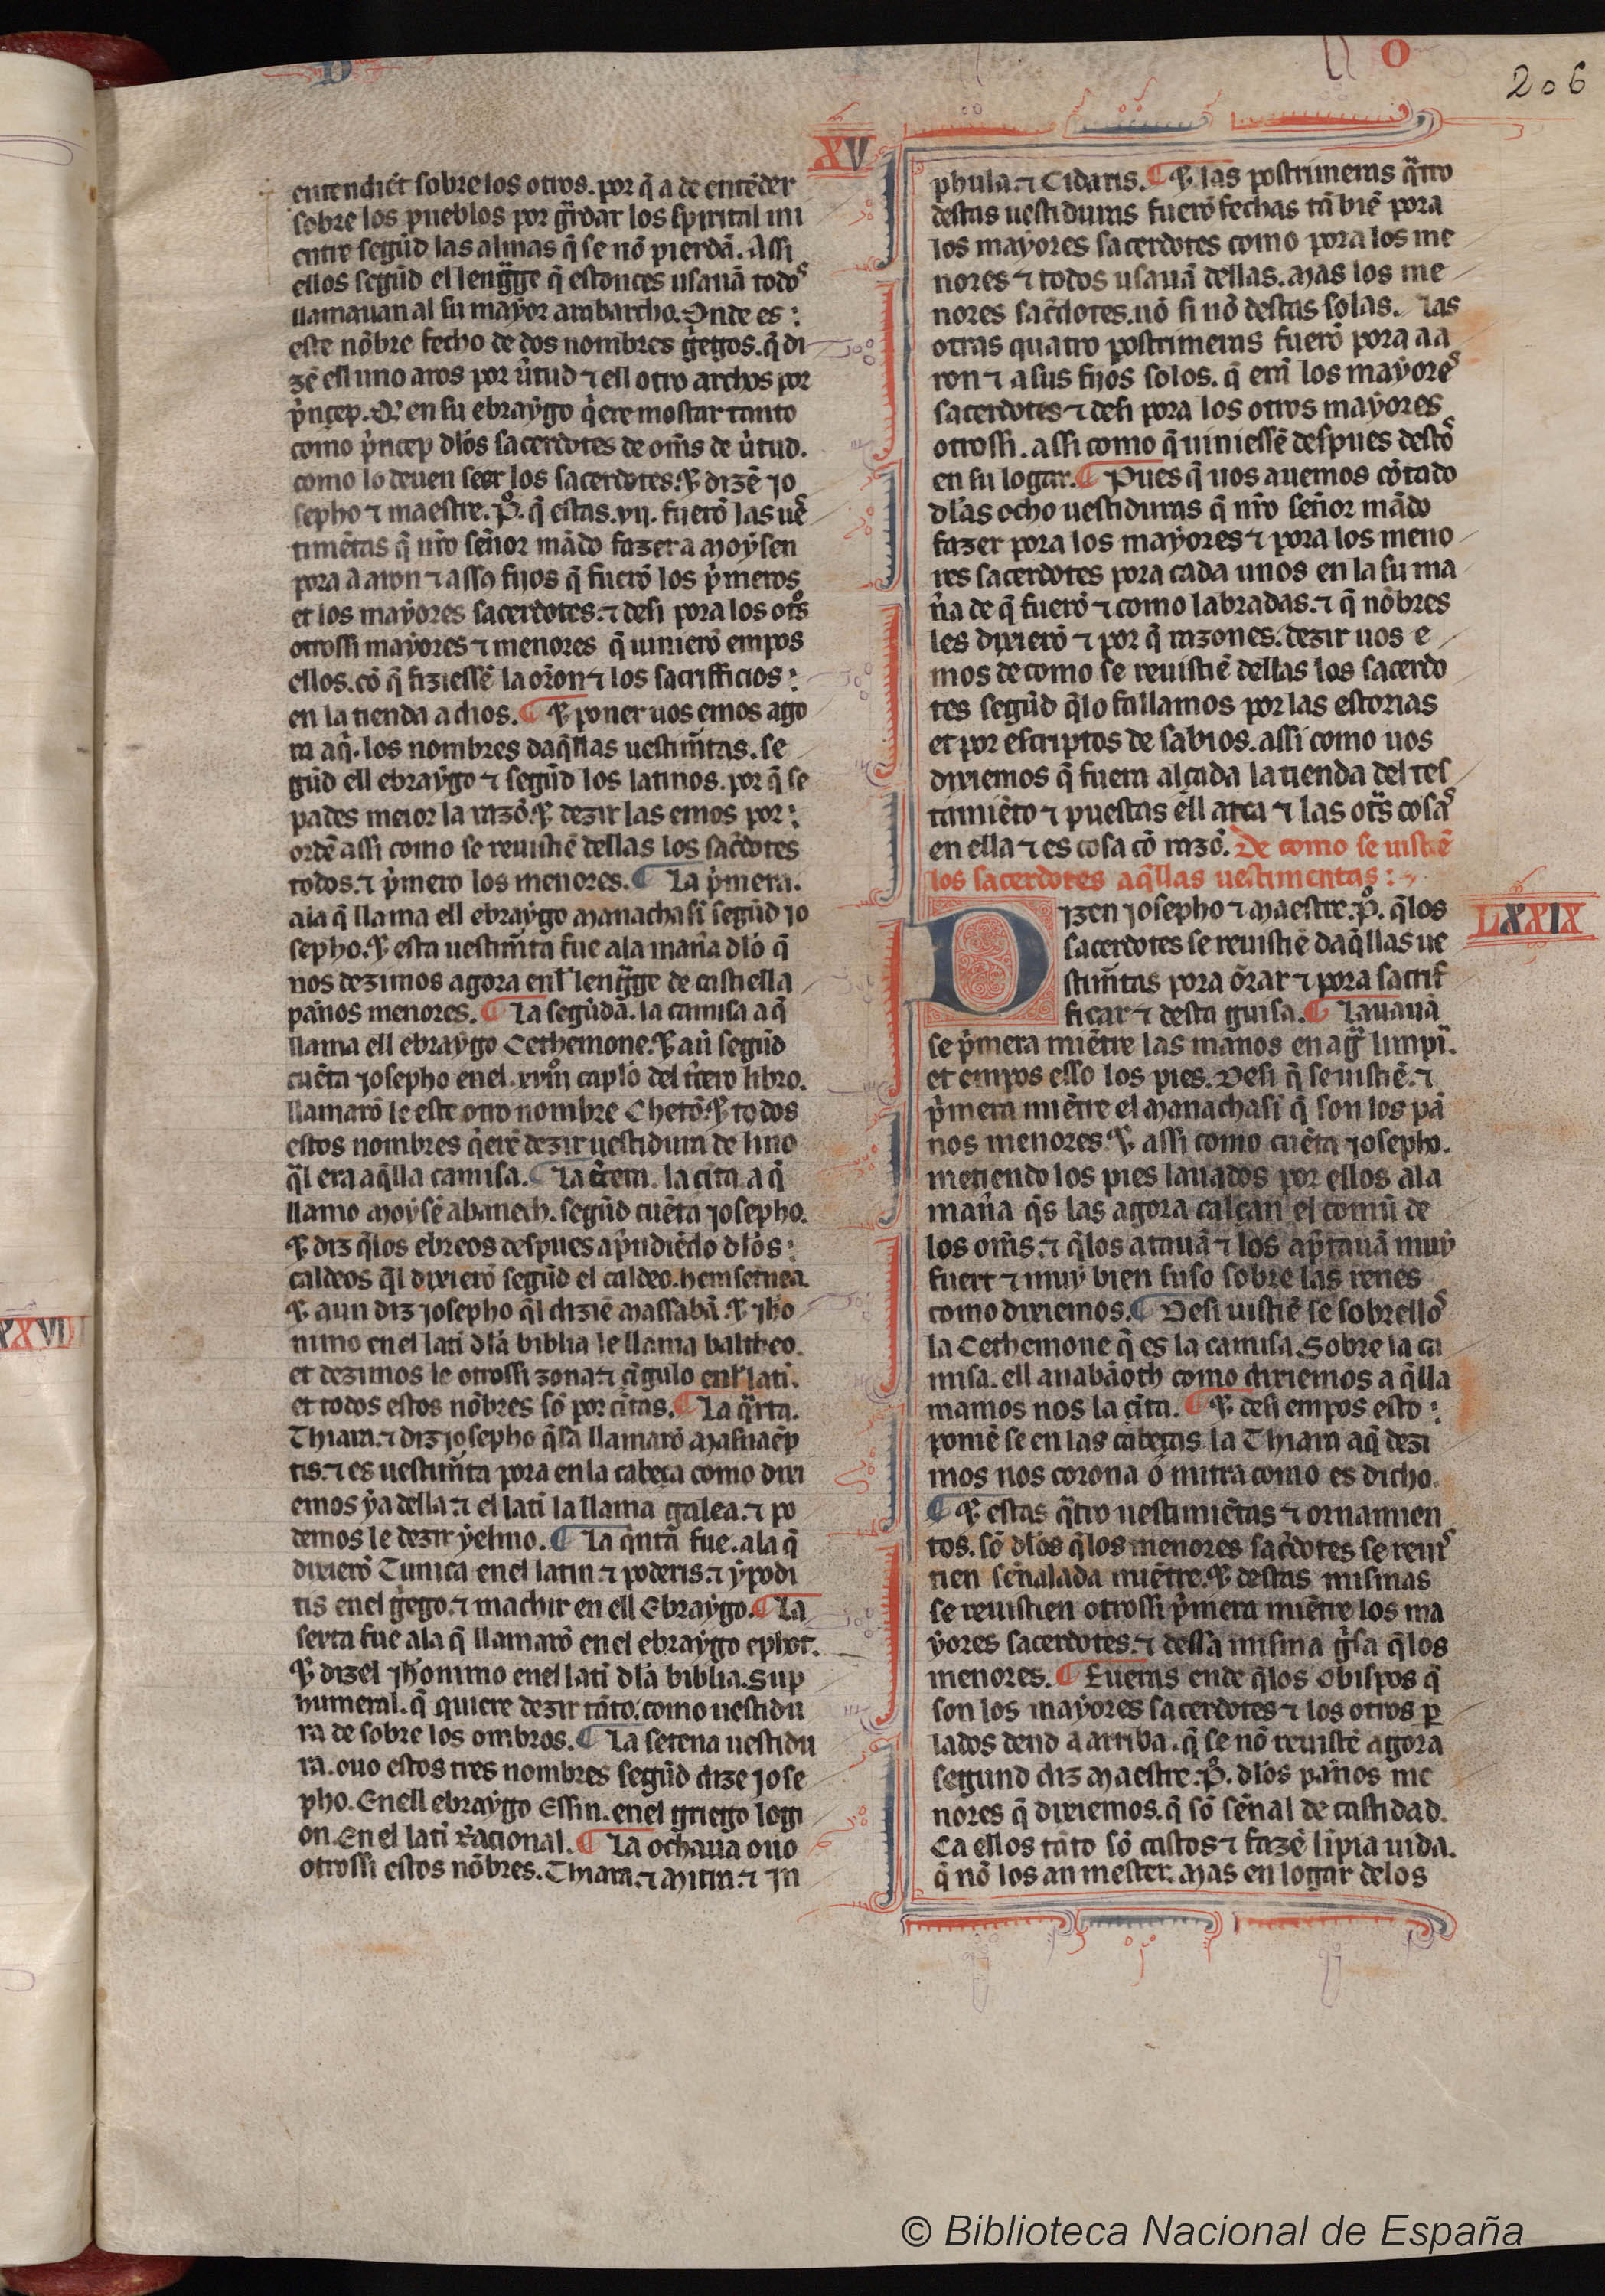 D
O
206
XV
entendiẽt sobre los otros. por q̃ a de entẽder
sobre los pueblos por gͣrdar los spirital mi
entre segũd las almas q̃ se nõ pierdã. Assi
ellos segũd el lengͣge q̃ estonces usauã todoˢ
llamauan al su mayor arabarcho. Onde es :
este nõbre fecho de dos nombres gͥegos. q̃ di
zẽ ell uno aros por uͥtud ⁊ ell otro archos por
pͥncep. Q̃ en su ebraygo qͥere mostrar tanto
como pͥncep dlos sacerdotes de om̃s de uͥtud.
como lo deuen seer los sacerdotes. ⁊ dizẽ Jo
sepho ⁊ maestre. P̊. q̃ estas .vii. fuerõ las ueˢ
timẽtas q̃ nr̃o señor mãdo fazer a Moysen
pora aaron ⁊ a sso fijos q̃ fuerõ los pͥmeros
et los mayores sacerdotes. ⁊ desi pora los otͦs
otrossi mayores ⁊ menores q̃ uinierõ empos
ellos. cõ q̃ fiziessẽ la or̃on ⁊ los sacrifficios :
en la tienda a dios. ¶ ⁊ poner uos emos ago
ra aqͥ. los nombres daq̃llas uestim̃tas. se
gũd ell ebraygo ⁊ segũd los latinos. por q̃ se
pades meior la razõ. ⁊ dezir las emos por :
ordẽ assi como se reuistiẽ dellas los sac̃dotes
todos. ⁊ pͥmero los menores. ¶ La pͥmera.
ala q̃ llama ell ebraygo Manachasi segũd Jo
sepho. ⁊ esta uestim̃ta fue ala man̄a dlo q̃
nos dezimos agora enl̃ lengͣge de castiella
pan̄os menores. ¶ La segũda. la camisa a q̃
llama ell ebraygo Cethemone. ⁊ aũ segũd
cuẽta Josepho en el .xviiͦ. caplo del tͥcero libro.
llamarõ le este otro nombre Chetõ. ⁊ todos
estos nombres qͥerẽ dezir uestidura de lino
q̃l era aq̃lla camisa. ¶ La tͥcera. la cita a q̃
llamo Moysẽ abanech. segũd cuẽta Josepho.
⁊ diz q̃ los ebreos despues apͥndiẽdo dlos :
caldeos q̃l dixierõ segũd el caldeo. hemsetnea.
⁊ aun diz Josepho q̃l diziẽ Massabã. ⁊ Jħo
nimo en el lati dla biblia le llama baltheo.
et dezimos le otrossi zona ⁊ cĩgulo enl̃ lati.
et todos estos nõbres sõ por cĩtas. ¶ La qͣrta.
Thiara. ⁊ diz Josepho q̃ la llamarõ Masnaẽp
tis. ⁊ es uestim̃ta pora en la cabeça como dixi
emos ya della. ⁊ el lati la llama galea. ⁊ po
demos le dezir yelmo. ¶ La qͥnta fue. ala q̃
dixierõ Tunica en el latin. ⁊ poderis. ⁊ ypodi
tis en el gͥego. ⁊ machir en ell Ebraygo. ¶ La
sexta fue ala q̃ llamarõ en el ebraygo ephot.
⁊ dizel Jħonimo en el lati dla biblia. Sup̱
humeral. q̃ quiere dezir tãto. como uestidu
ra de sobre los ombros. ¶ La setena uestidu
ra. ouo estos tres nombres segũd dize Jose
pho. En ell ebraygo Essin. en el griego logi
on. En el lati Racional. ¶ La ochaua ouo
otrossi estos nõbres. Thiara. ⁊ Mitra. ⁊ In
phula. ⁊ Cidaris. ¶ ⁊ las postrimeras qͣtro
destas uestiduras fuerõ fechas tã biẽ pora
los mayores sacerdotes como pora los me
nores ⁊ todos usauã dellas. Mas los me
nores sac̃dotes. nõ si nõ destas solas. Las
otras quatro postrimeras fuerõ pora aa
ron ⁊ a sus fijos solos. q̃ erã los mayoreˢ
sacerdotes ⁊ desi pora los otros mayores
otrossi. assi como q̃ uiniessẽ despues destoˢ
en su logar. ¶ Pues q̃ uos auemos cõtado
dlas ocho uestiduras q̃ nr̃o sen̄or mãdo
fazer pora los mayores ⁊ pora los meno
res sacerdotes pora cada unos en la su ma
n̄a de q̃ fuerõ ⁊ como labradas. ⁊ q̃ nõbres
les dixierõ ⁊ por q̃ razones. dezir uos e
mos de como se reuistiẽ dellas los sacerdo
tes segũd q̃ lo fallamos por las estorias
et por escriptos de sabios. assi como uos
dixiemos q̃ fuera alçada la tienda del tes
tamiẽto ⁊ puestas ẽll arca ⁊ las otͣs cosaˢ
en ella ⁊ es cosa cõ razõ. De como se uistiẽ
los sacerdotes aq̃llas uestimentas :
LXXIX
Dizen Josepho ⁊ Maestre. P̊. q̃ los
sacerdotes se reuistiẽ daq̃llas ue
stim̃tas pora or̃ar ⁊ pora sacrif
ficar ⁊ desta guisa. ¶ Lauauã
se pͥmera miẽtre las manos en agͣ limpiͣ.
et empos esso los pies. Desi q̃ se uistiẽ. ⁊
pͥmera miẽtre el Manachasi q̃ son los pã
nos menores. ⁊ assi como cuẽta Josepho.
metiendo los pies lauados por ellos ala
man̄a q̃s las agora calçan el comũ de
los om̃s. ⁊ q̃ los atauã ⁊ los apͥtauã muy
fuert ⁊ muy bien suso sobre las renes
como dixiemos. ¶ Desi uistiẽ se sobrelloˢ
la Cethemone q̃ es la camisa. Sobre la ca
misa. ell anabãoth como dixiemos a q̃ lla
mamos nos la cĩta. ¶ ⁊ desi empos esto :
poniẽ se en las cabeças la Thiara a q̃ dezi
mos nos corona o mitra como es dicho.
¶ ⁊ estas qͣtro uestimiẽtas ⁊ ornamien
tos. sõ dlos q̃ los menores sac̃dotes se reuiˢ
tien sen̄alada miẽtre. ⁊ destas mismas
se reuistien otrossi pͥmera miẽtre los ma
yores sacerdotes. ⁊ dessa misma gͥsa q̃ los
menores. ¶ Fueras ende q̃ los Obispos q̃
son los mayores sacerdotes ⁊ los otros p̱
lados dend a arriba. q̃ se nõ reuistẽ agora
segund diz Maestre. P̊. dlos pan̄os me
nores q̃ dixiemos. q̃ sõ sen̄al de castidad.
Ca ellos tãto sõ castos ⁊ fazẽ lĩpia uida.
q̃ nõ los an mester. Mas en logar delos
XXVIII
© Biblioteca Nacional de España